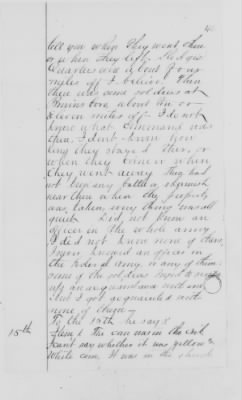 tell you when they went, there
or when they left. Hedges
Quarters was about four
miles off I believe. Then
there was some soldiers at
about ten or
Eleven miles off I do not
know what Command was
there, I dont know how
long they stayed there, or
when they came or when
they went away They had
not had any battle or skirmish
near there when the property
was taken, every thing was all
quiet. Did, not know an
officer in the whole army
I did not know none of them,
I never knowed an officer in
the Federal army, or any of them
some of the soldiers
up an acquaintance with me
but I got acquainted with
none of them
To the 15th he says
15th
Item 1 The corn was in the crib
I cant say whether it was yellow or
white corn, It was in the shuck